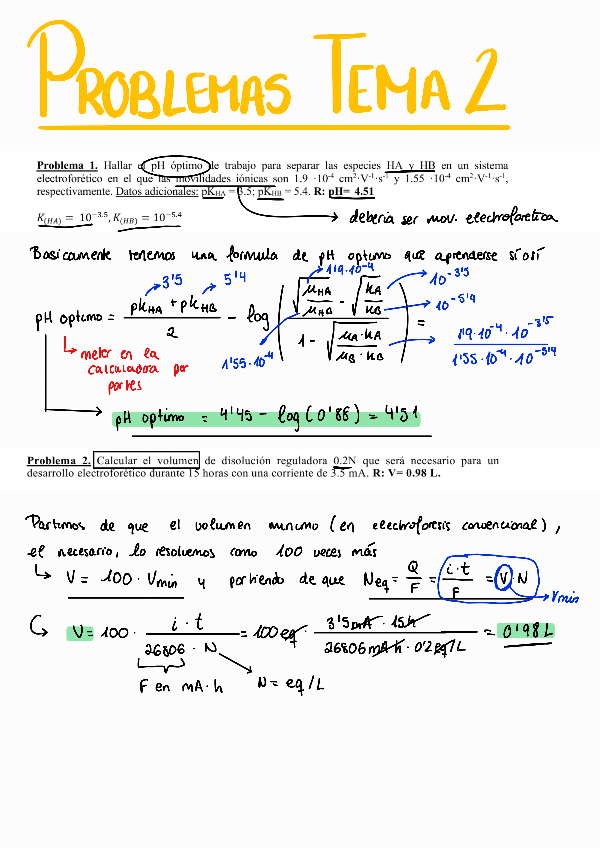 PROBLEMAS TEMA 2
Problema 1. Hallar el pH óptimo de trabajo para separar las especies HA y HB en un sistema
electroforético en el que las movilidades iónicas son 1.9 ·10⁻⁴ cm²·V⁻¹·s⁻¹ y 1.55 ·10⁻⁴ cm²·V⁻¹·s⁻¹,
respectivamente. Datos adicionales: pK_HA = 3.5; pK_HB = 5.4. R: pH= 4.51
K_(HA) = 10^−3.5, K_(HB) = 10^−5.4 → debería ser mov. electroforética
Basicamente tenemos una formula de pH optimo que aprenderse sí osí
3'5 5'4 1'9·10⁻⁴ 10^-3'5
pH optimo = (pK_HA + pK_HB)/2 − log ( (√(μ_HA/μ_HB) − √(K_A/K_B)) / (1 − √(μ_A·K_A/μ_B·K_B)) ) =
10^-5'4
1'55·10⁻⁴
1'9·10⁻⁴ · 10^-3'5
1'55·10⁻⁴ · 10^-5'4
meter en la
calculadora por
partes
pH optimo = 4'45 − log (0'86) = 4'51
Problema 2. Calcular el volumen de disolución reguladora 0.2N que será necesario para un
desarrollo electroforético durante 15 horas con una corriente de 3.5 mA. R: V= 0.98 L.
Partimos de que el volumen minimo (en electroforesis convencional),
el necesario, lo resolvemos como 100 veces más
↳ V = 100 · Vmin y partiendo de que Neq = Q/F = i·t/F = V·N
Vmin
V = 100 · i·t/(26806 · N) = 100 eq · 3'5 mA · 15 h/(26806 mA·h · 0'2 eq/L) = 0'98 L
F en mA·h N = eq/L